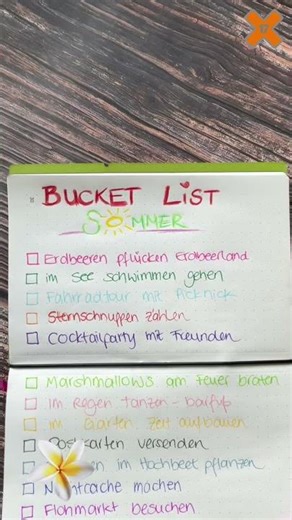 BUCKET LIST
SOMMER
Erdbeeren pflücken Erdbeerland
im See schwimmen gehen
Fahrradtour mit Picknick
Sternschnuppen zählen
Cocktailparty mit Freunden
Marshmallows am Feuer braten
Im Regen tanzen - barfuß
im Garten Zelt aufbauen
Postkarten versenden
im Hochbeet pflanzen
machen
Flohmarkt besuchen